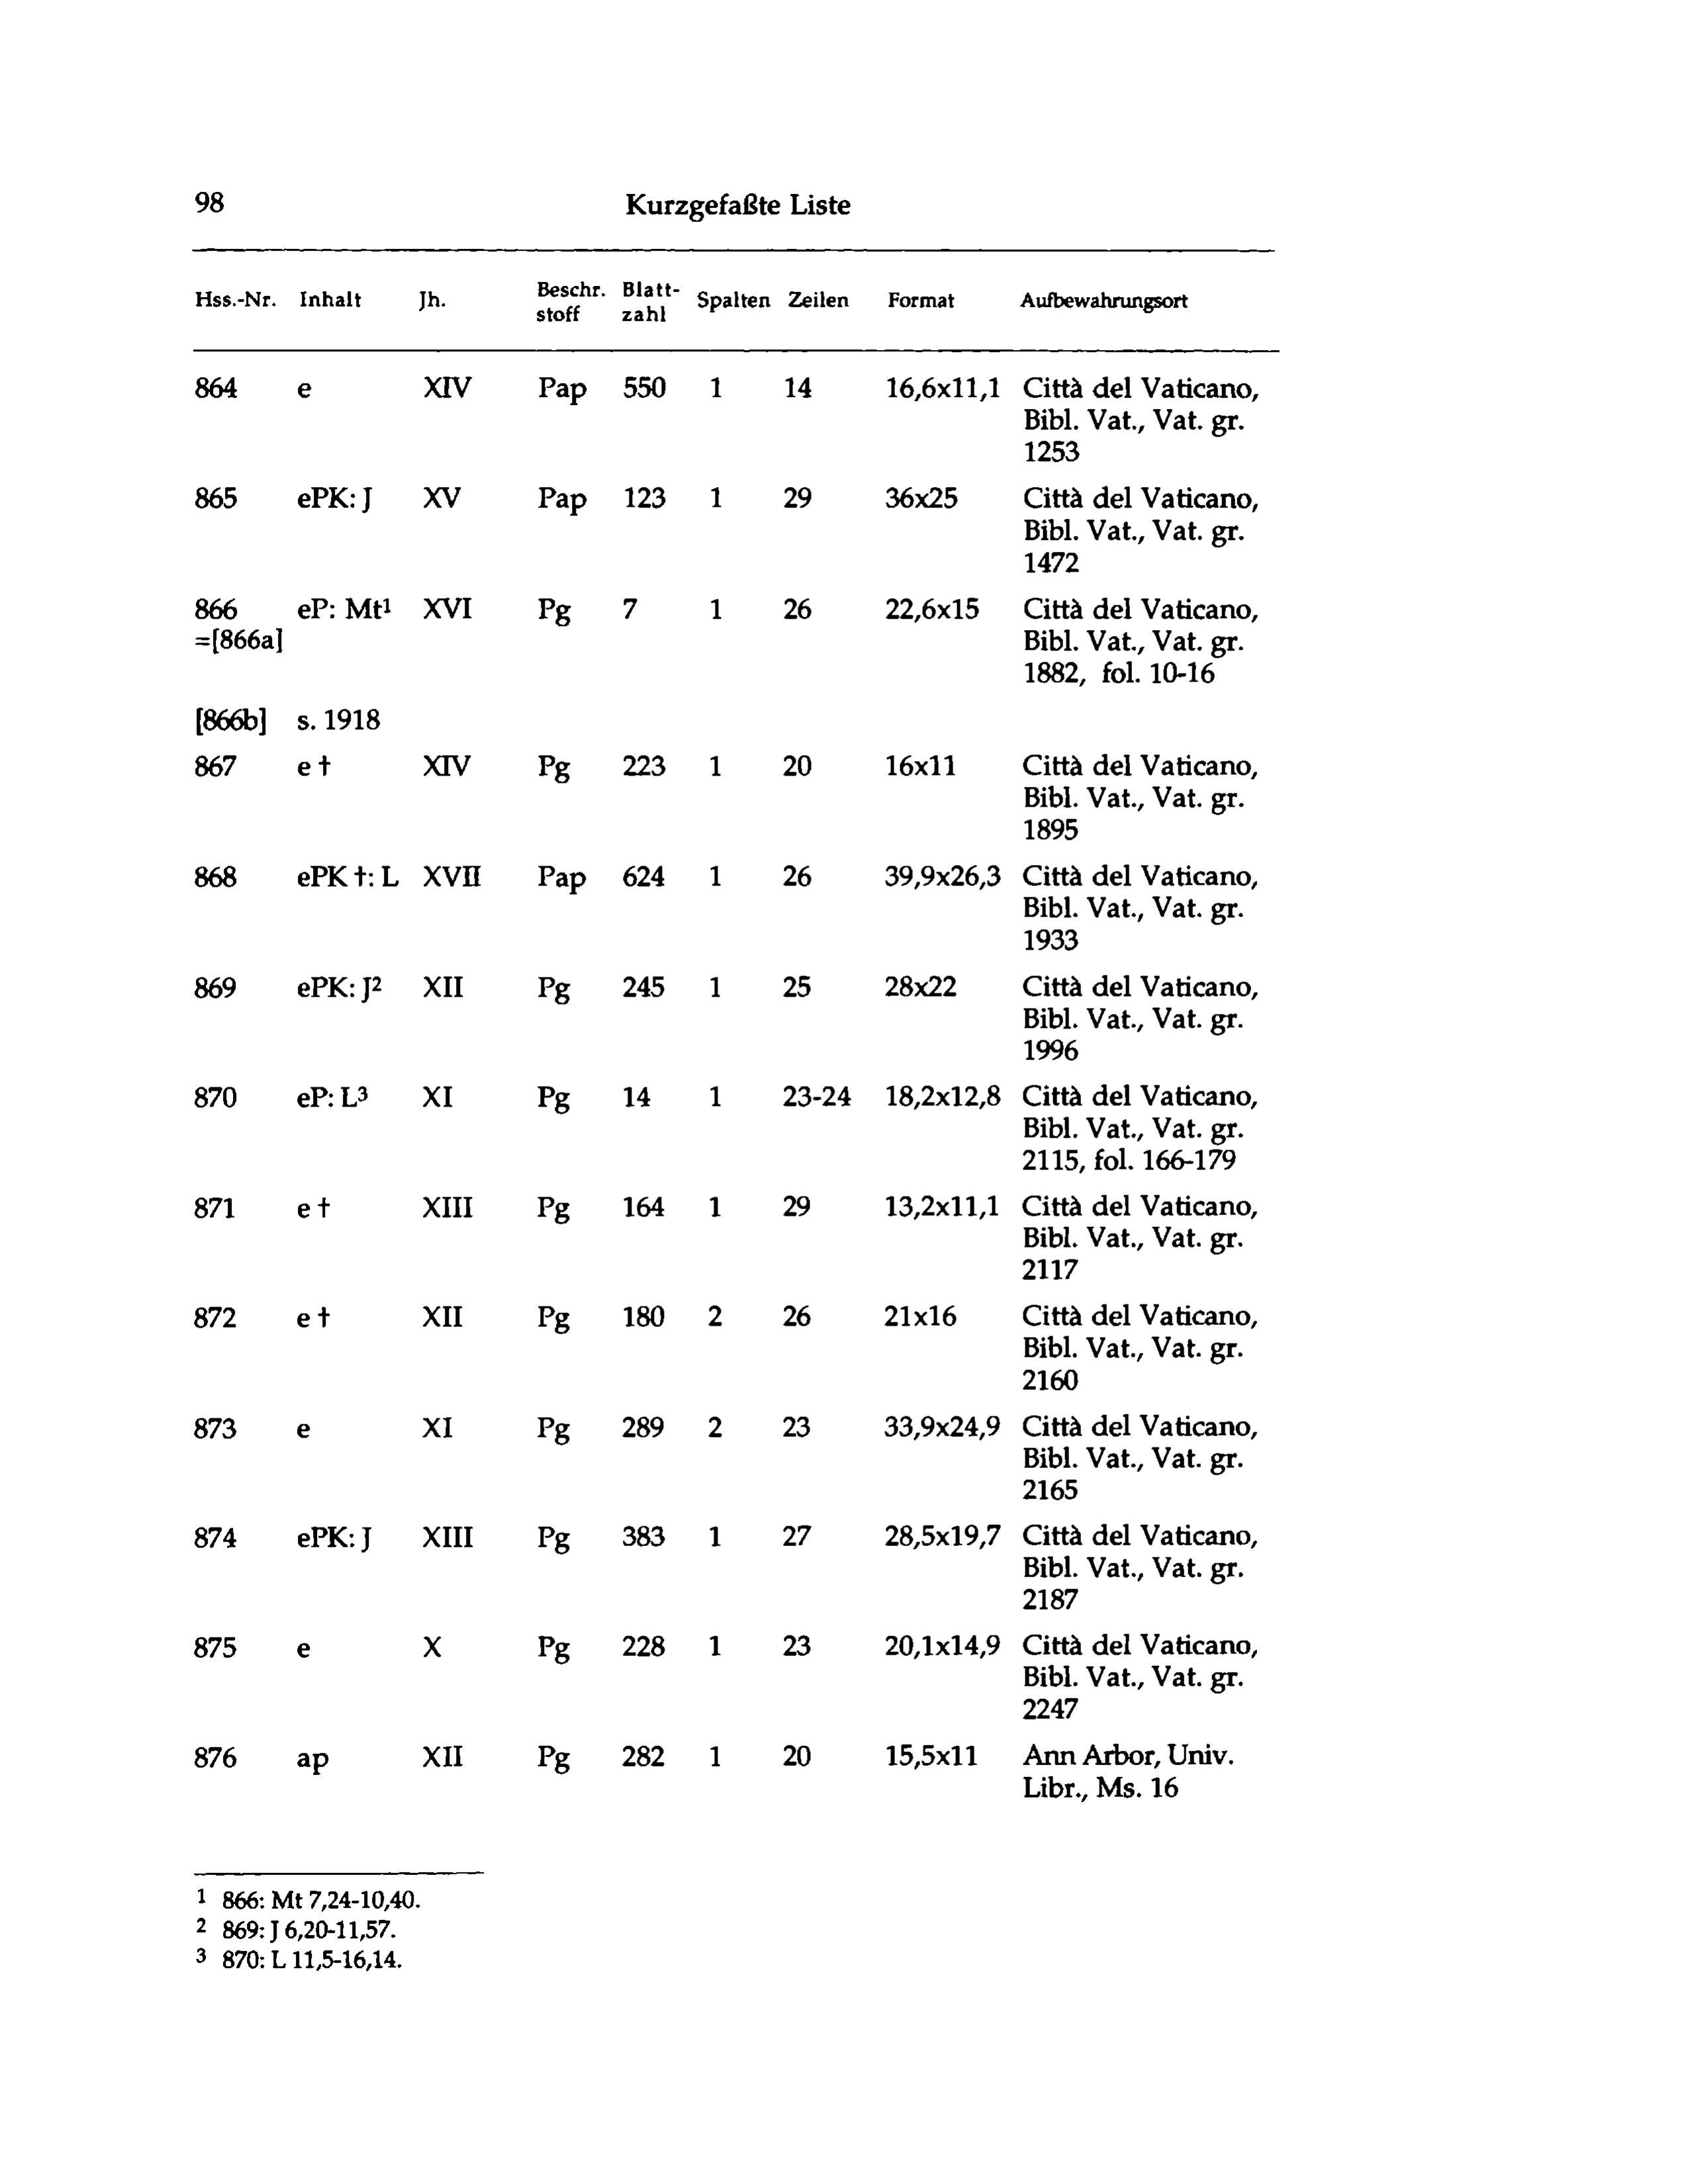 98 Kurzgefaßte Liste
Hss.-Nr. Inhalt Jh. Beschr. stoff Blatt- zahl Spalten Zeilen Format Aufbewahrungsort
864 e XIV Pap 550 1 14 16,6x11,1 Città del Vaticano,
Bibl. Vat., Vat. gr.
1253
865 ePK: J XV Pap 123 1 29 36x25 Città del Vaticano,
Bibl. Vat., Vat. gr.
1472
866 eP: Mt¹ XVI Pg 7 1 26 22,6x15 Città del Vaticano,
=[866a] Bibl. Vat., Vat. gr.
1882, fol. 10-16
[866b] s. 1918
867 e † XIV Pg 223 1 20 16x11 Città del Vaticano,
Bibl. Vat., Vat. gr.
1895
868 ePK †: L XVII Pap 624 1 26 39,9x26,3 Città del Vaticano,
Bibl. Vat., Vat. gr.
1933
869 ePK: J² XII Pg 245 1 25 28x22 Città del Vaticano,
Bibl. Vat., Vat. gr.
1996
870 eP: L³ XI Pg 14 1 23-24 18,2x12,8 Città del Vaticano,
Bibl. Vat., Vat. gr.
2115, fol. 166-179
871 e † XIII Pg 164 1 29 13,2x11,1 Città del Vaticano,
Bibl. Vat., Vat. gr.
2117
872 e † XII Pg 180 2 26 21x16 Città del Vaticano,
Bibl. Vat., Vat. gr.
2160
873 e XI Pg 289 2 23 33,9x24,9 Città del Vaticano,
Bibl. Vat., Vat. gr.
2165
874 ePK: J XIII Pg 383 1 27 28,5x19,7 Città del Vaticano,
Bibl. Vat., Vat. gr.
2187
875 e X Pg 228 1 23 20,1x14,9 Città del Vaticano,
Bibl. Vat., Vat. gr.
2247
876 ap XII Pg 282 1 20 15,5x11 Ann Arbor, Univ.
Libr., Ms. 16
¹ 866: Mt 7,24-10,40.
² 869: J 6,20-11,57.
³ 870: L 11,5-16,14.